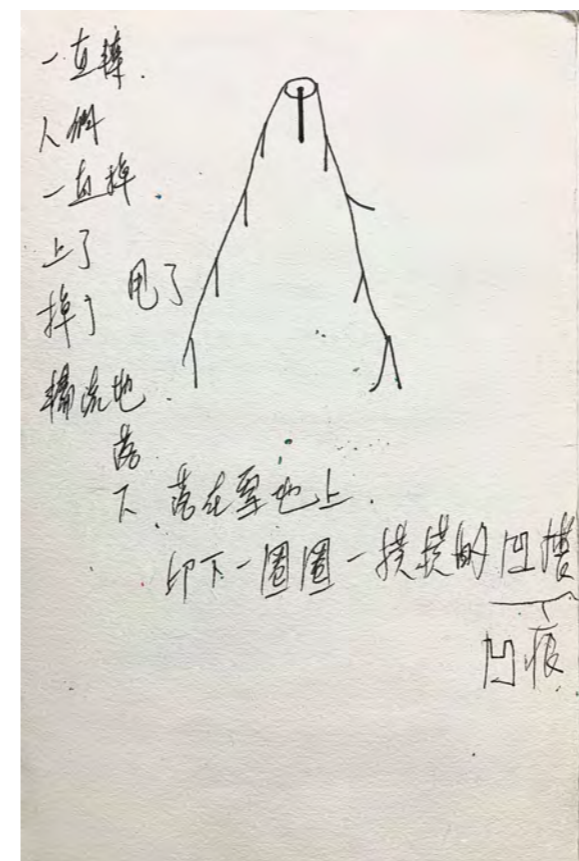 一直轉
人們
一直掉
上了
掉了
甩了
輪流地
落
下 落在雪地上
印下一圈圈一摸摸的凹摟
凹痕